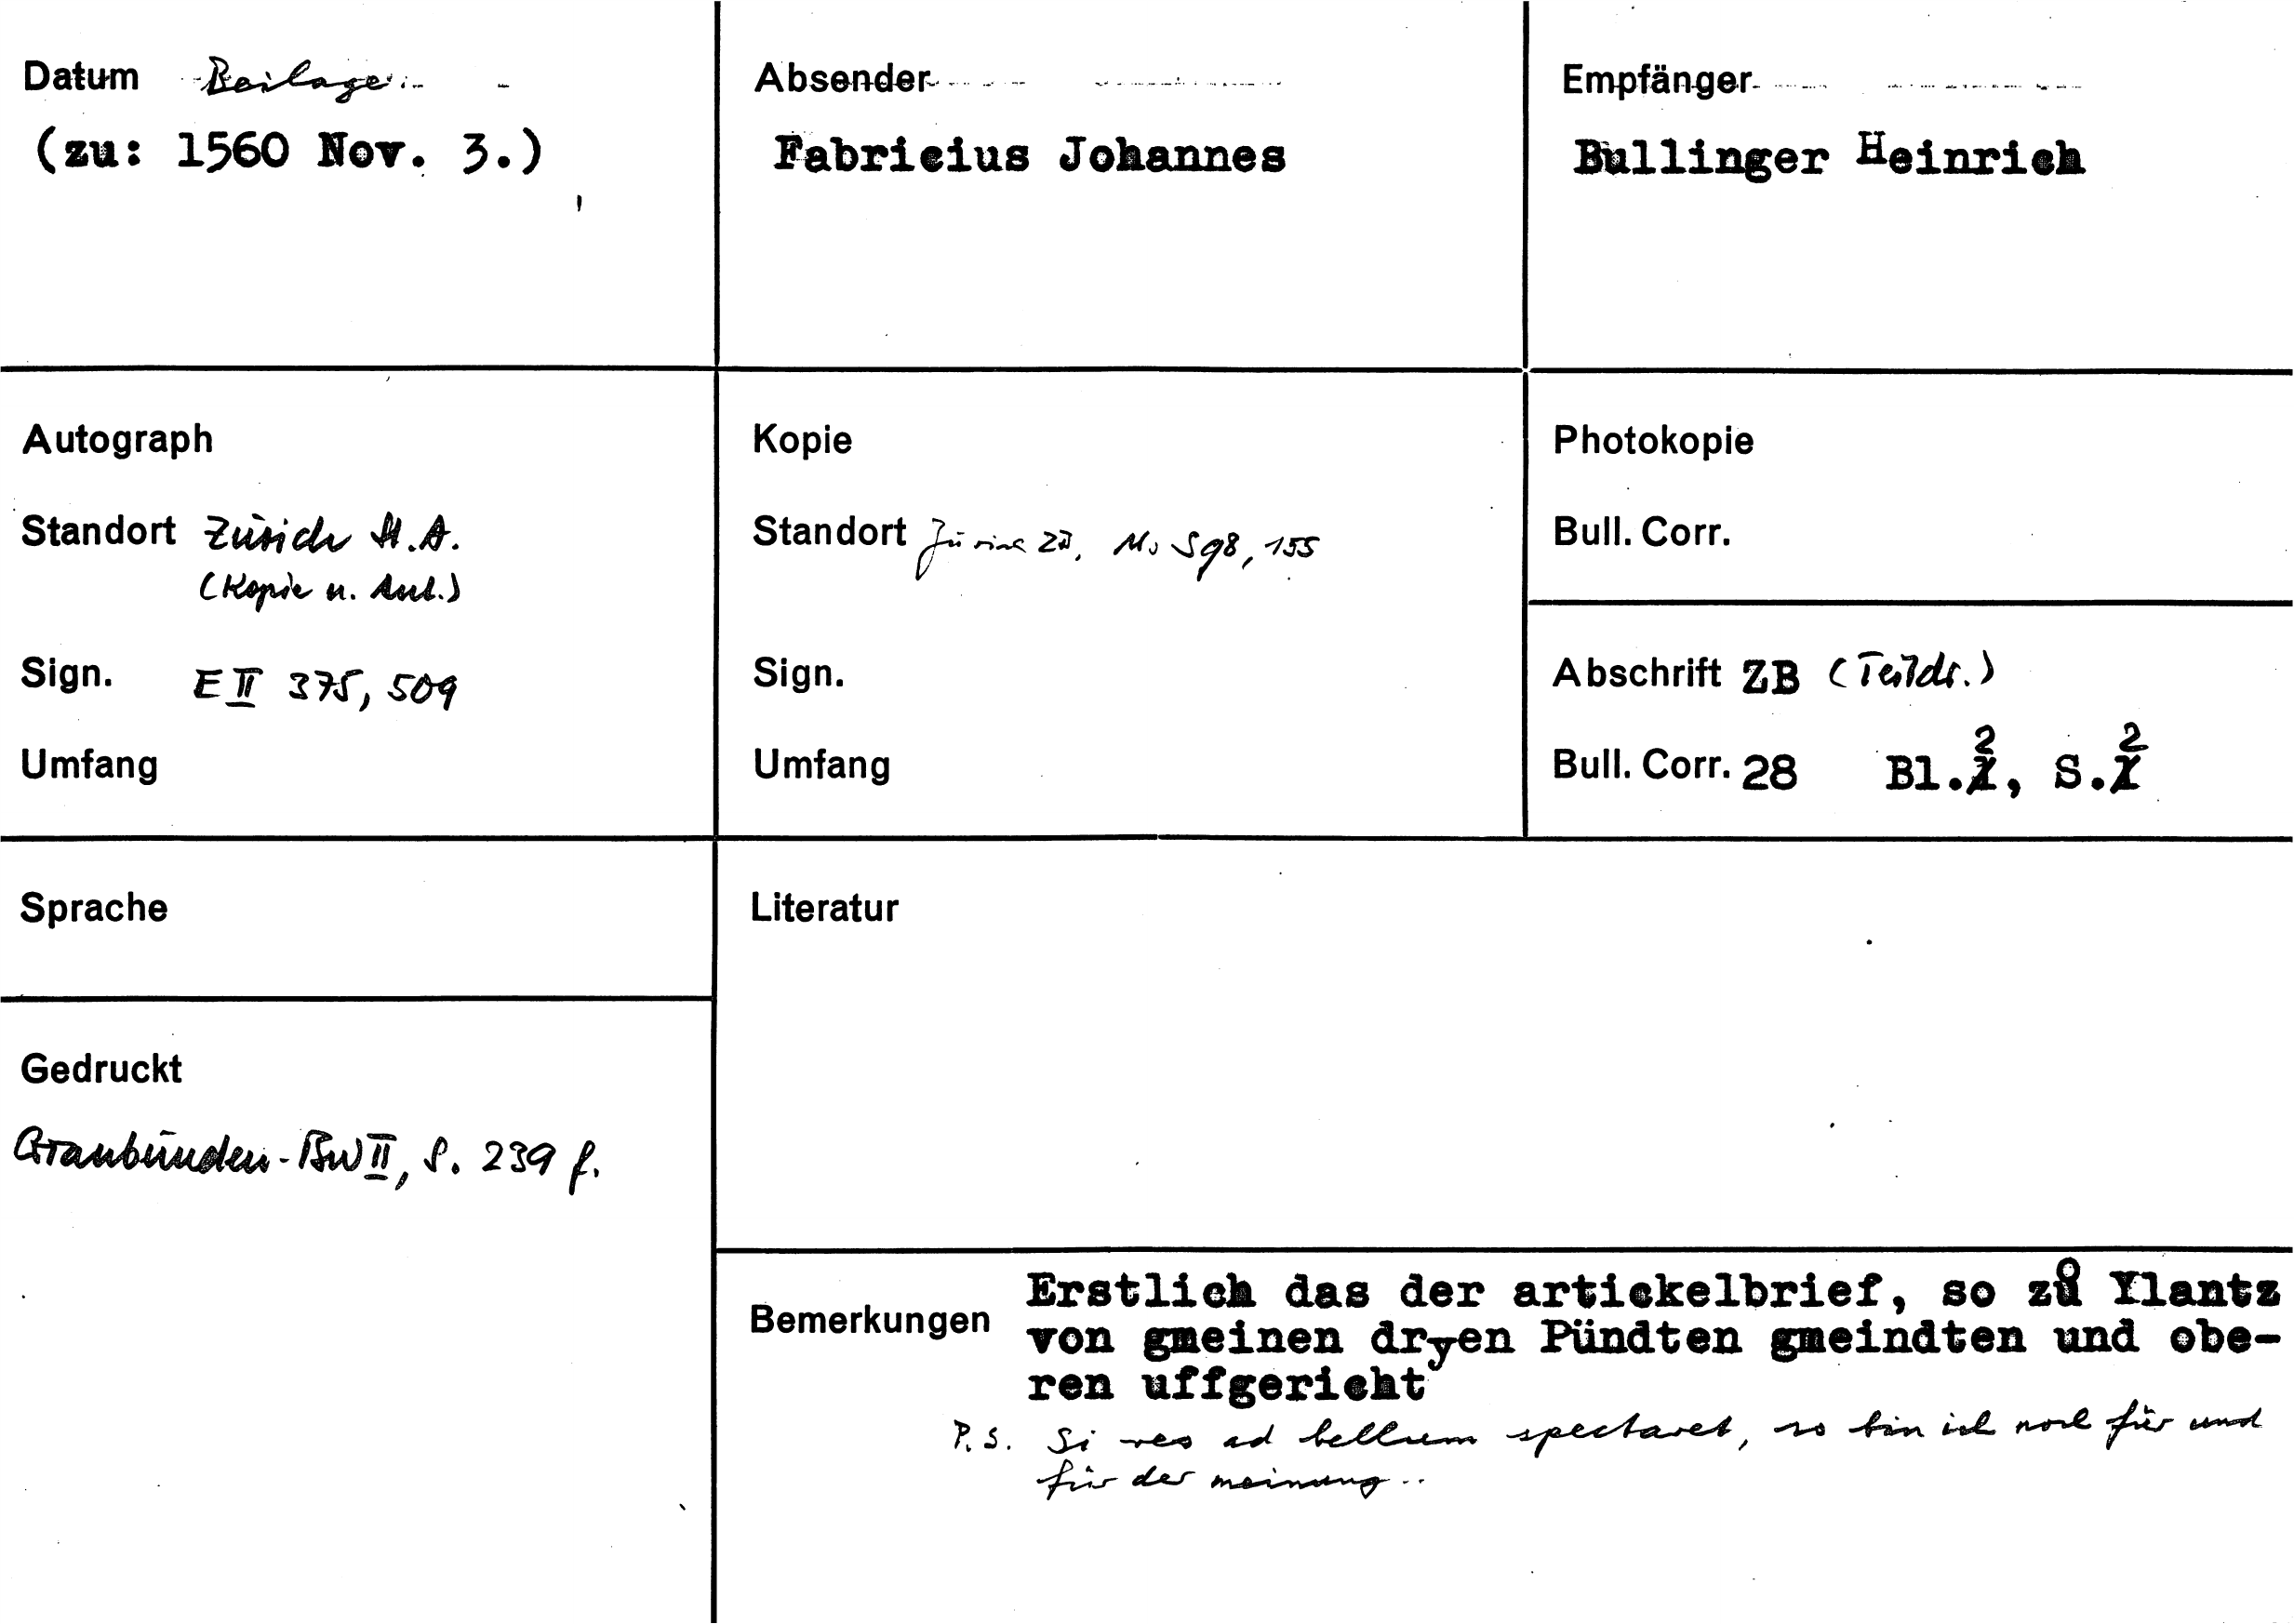 Datum Beilage
(zu: 1560 Nov. 3.)
Absender
Fabricius Johannes
Empfänger
Bullinger Heinrich
Autograph
Standort Zürich St.A.
(Kopie u. Aut.)
Sign. E II 375, 509
Umfang
Kopie
Standort Zürich ZB, Ms S 98, 155
Sign.
Umfang
Photokopie
Bull. Corr.
Abschrift ZB (Teildr.)
Bull. Corr. 28 Bl. 2, S. 2
Sprache
Literatur
Gedruckt
Graubünden-BW II, S. 239 f.
Bemerkungen
Erstlich das der artickelbrief, so zů Ylantz
von gmeinen dryen Pündten gmeindten und obe-
ren uffgericht
P.S. Si res ad bellum spectaret, so bin ich noch für und
für der meinung..